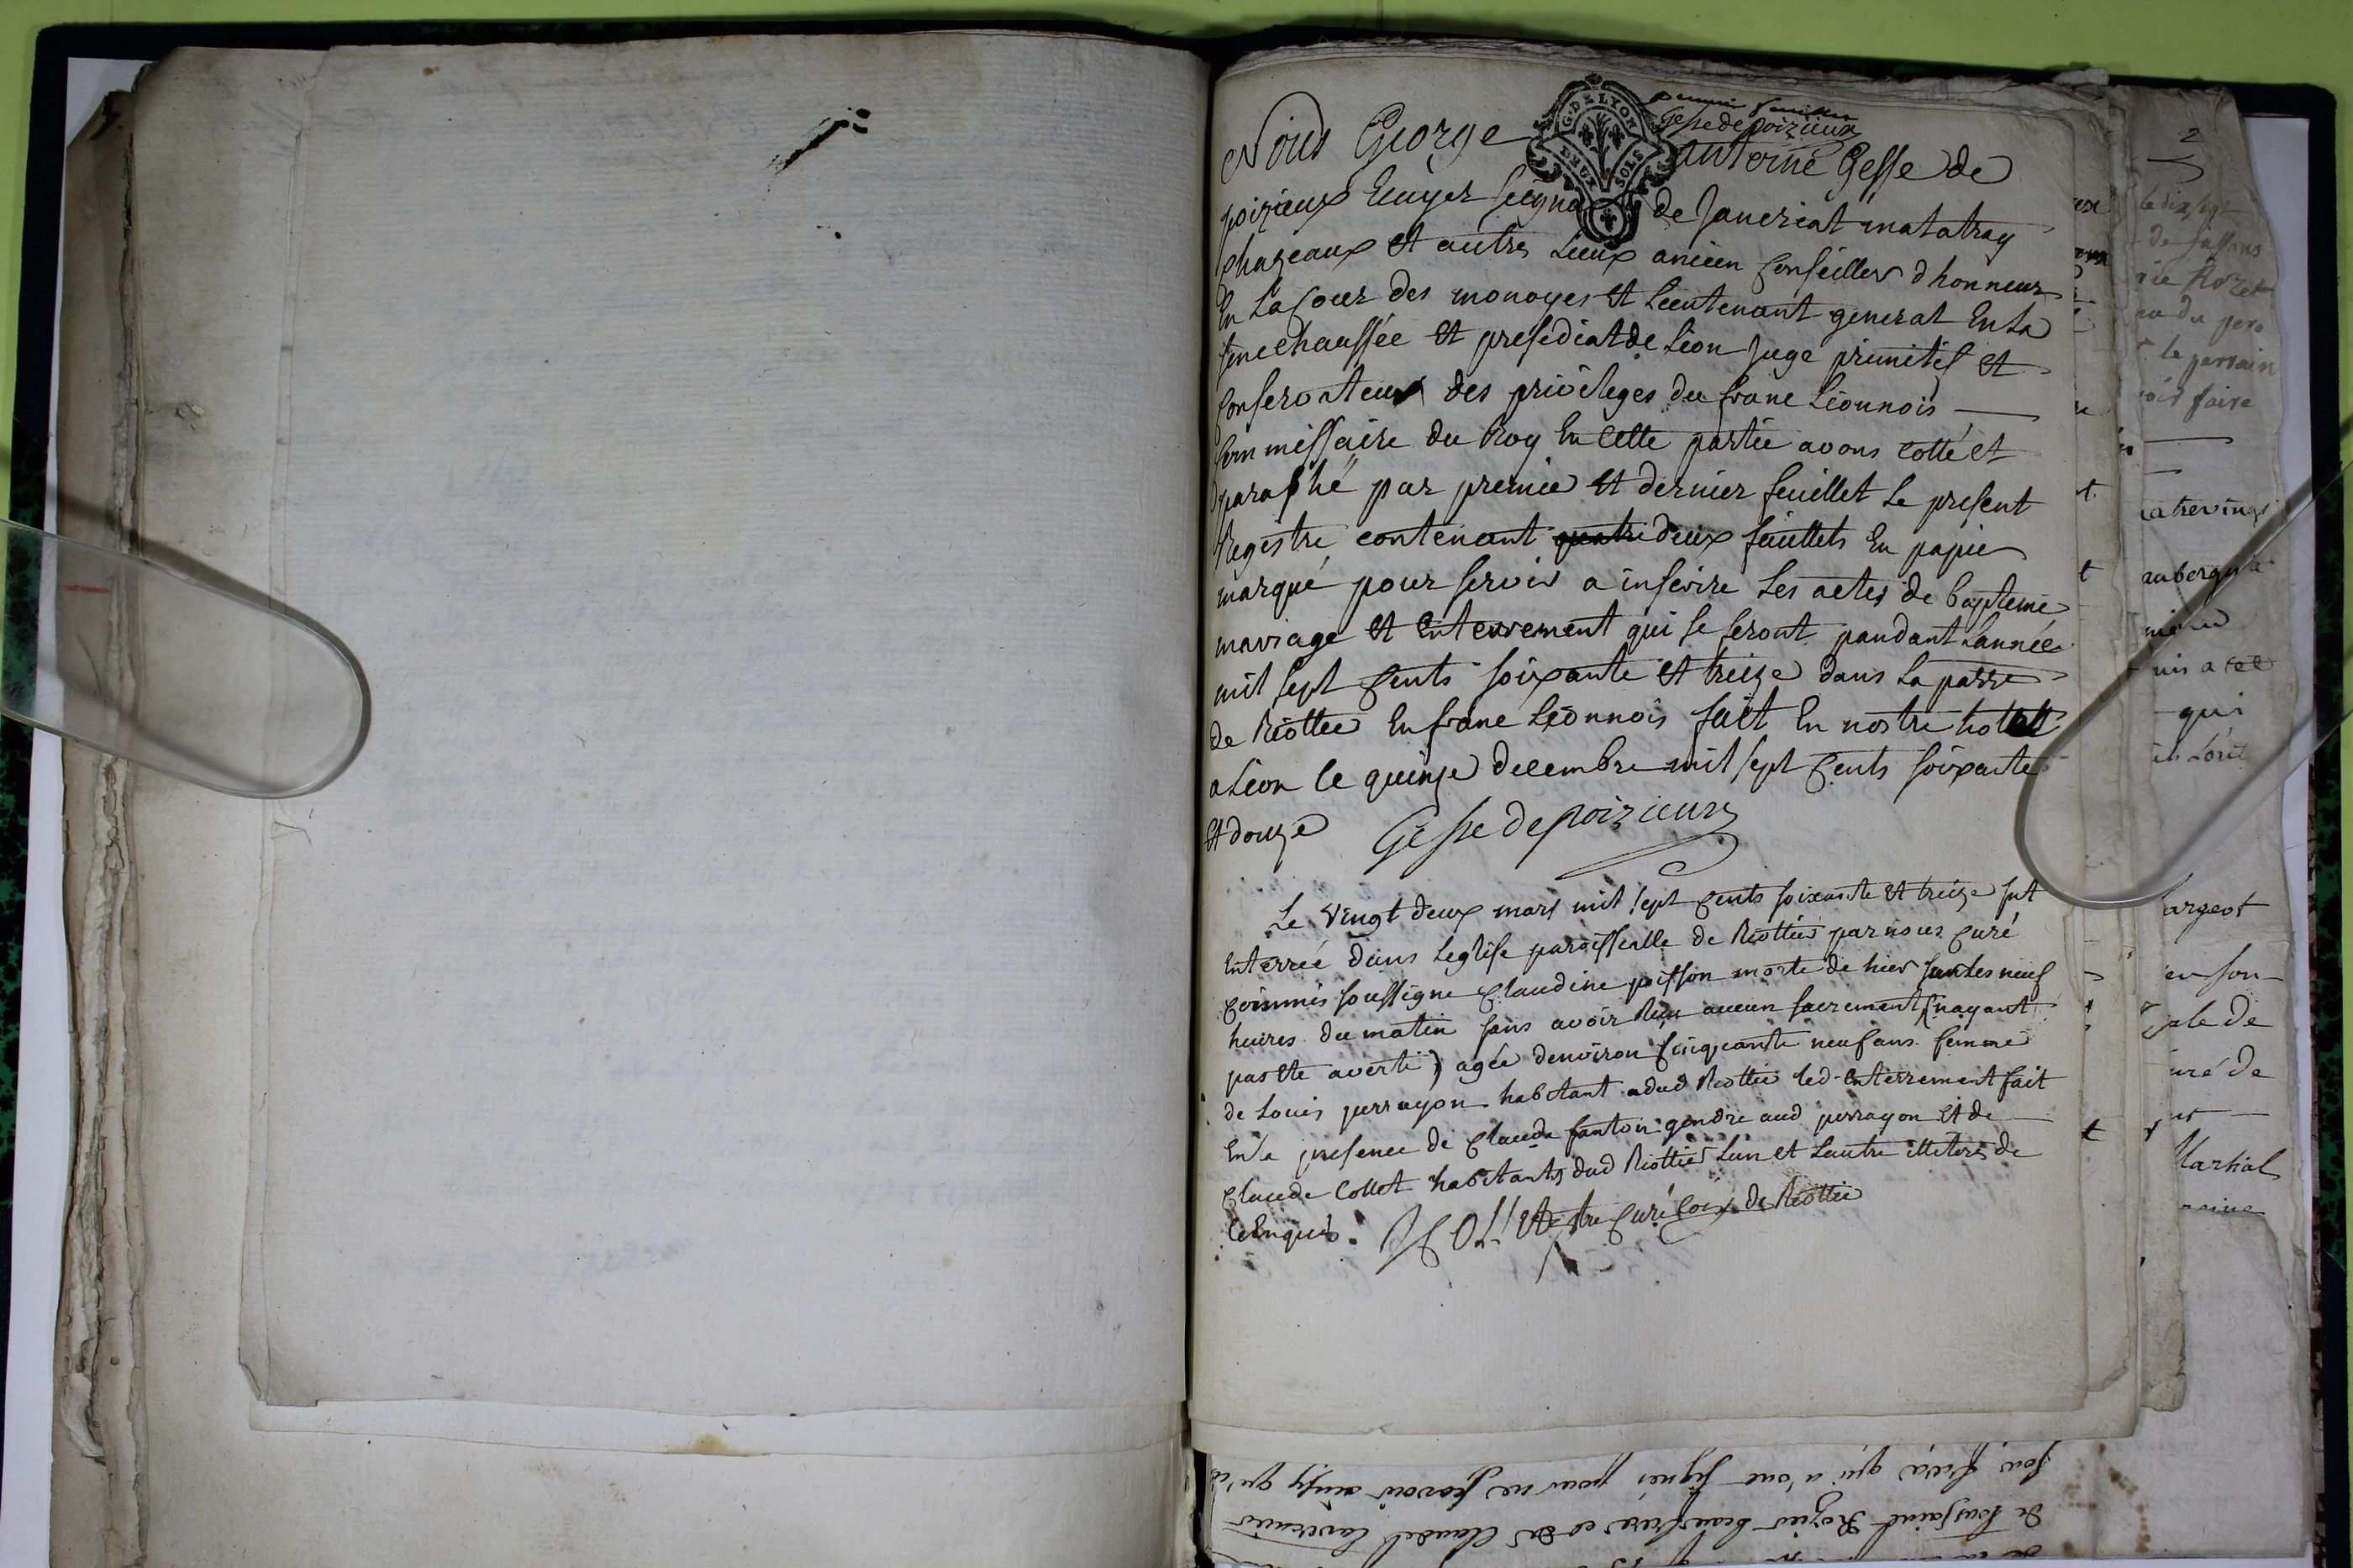 premier feuillet
Gesse de poizieux
G. DE LYON
DEUX SOLS
Nous George antoine Gesse de
poizieux Ecuyer seigneur de Janeriat matatray
chazeaux et autres Lieux ancien Conseiller d honneur
En La Cour des monoyes et Lieutenant general En La
senechaussée et presidiat de Lion Juge primitif et
Conservateur des privileges du franc Lionnois
Commissaire du Roy En Cette partie avons cotté et
paraphé par premier et dernier feuillet Le present
Registre contenant quatre deux feuillets En papier
marqué pour servir a inscrire Les actes de bapteme
mariage et enterrement qui se feront pandant L'année
mil sept Cents soixante et treize dans La parre
de Riottier En franc Lionnois fait En nostre hotel
a Lion le quinze decembre mil sept Cents soixante
et douze Gesse de poizieux
Le vingt deux mars mil sept Cents soixante et treize fut
Enterrée dans Leglise paroissialle de Riottier par nous Curé
Commis soussigne Claudine poisson morte de hier sur Les neuf
heures du matin sans avoir Reçu aucun sacrement (nayant
pas ete averti) agée denviron Cinquante neuf ans femme
de Louis perrayon habitant adud Riottier led. Enterrement fait
En la presence de Claude fanton gendre aud perrayon et de
Claude Collet habitants dud Riottier Lun et Lautre illiteres de
Ce Enquis. Curé de Riottier
2
le perrain
voir faire
qui
argeot
en son
ale de
uré de
Martial
son qui n'ont signés pour ne scavoir
de Toussaint Rozier beaufrere et de Claude